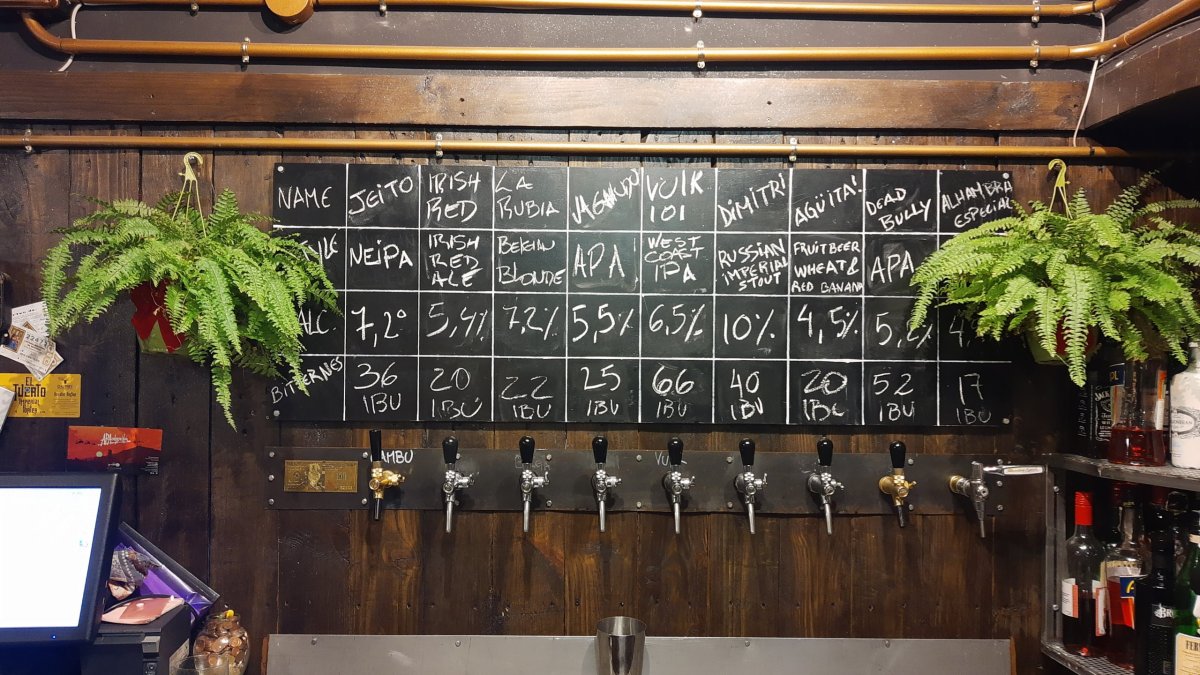 NAME
JEITO
IRISH
RED
LA
RUBIA
VUIK
101
DIMITRI
AGÜITA!
DEAD
BULLY
ALHAMBRA
ESPECIAL
NEIPA
IRISH
RED
ALE
BELGIAN
BLONDE
APA
WEST
COAST
IPA
RUSSIAN
IMPERIAL
STOUT
FRUITBEER
WHEAT &
RED BANANA
APA
ALC.
7,2°
5,4%
7,2%
5,5%
6,5%
10%
4,5%
5,2%
BITTERNES
36
IBU
20
IBU
22
IBU
25
IBU
66
IBU
40
IBU
20
IBU
52
IBU
17
IBU
EL
TUERTO